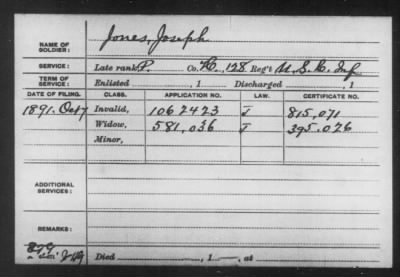 NAME OF SOLDIER: Jones, Joseph
SERVICE: Late rank P. Co. H, 128 Reg't U.S.C. Inf
TERM OF SERVICE: Enlisted , 1 Discharged , 1
DATE OF FILING. CLASS. APPLICATION NO. LAW. CERTIFICATE NO.
1891. Oct 7 Invalid, 1062423 J 815,071
Widow, 581,036 J 395,026
Minor,
ADDITIONAL SERVICES:
REMARKS:
Died , 1 , at